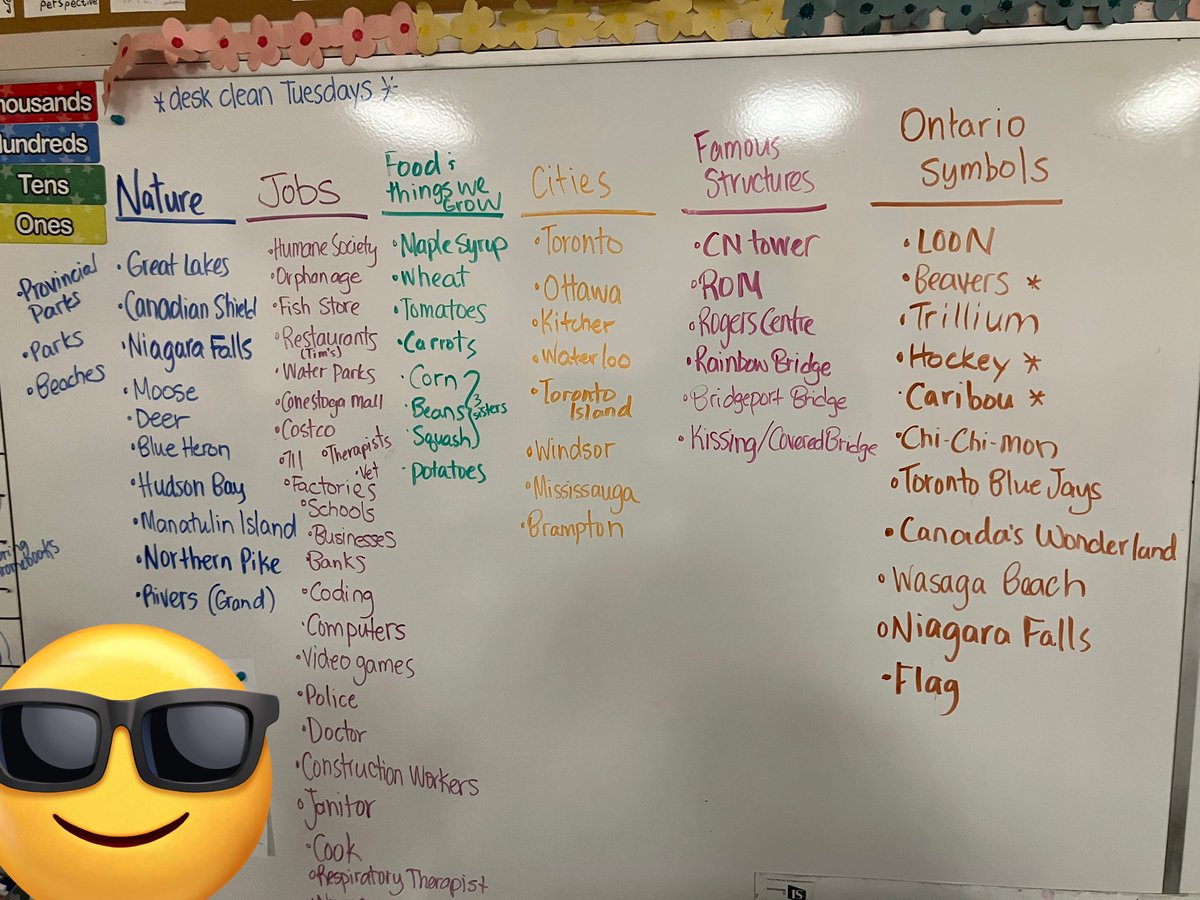 perspective
*desk clean Tuesdays*
Tens
Ones
Nature
•Provincial
Parks
•Parks
•Beaches
•Great Lakes
•Canadian Shield
•Niagara Falls
•Moose
•Deer
•Blue Heron
•Hudson Bay
•Manatulin Island
•Northern Pike
•Rivers (Grand)
Jobs
•Humane Society
•Orphanage
•Fish Store
•Restaurants
(Tim's)
•Water Parks
•Conestoga mall
•Costco
•711 •Therapists
•Vet
•Factories
•Schools
•Businesses
•Banks
•Coding
•Computers
•Video games
•Police
•Doctor
•Construction Workers
•Janitor
•Cook
•Respiratory Therapist
Food &
things we
Grow
•Maple Syrup
•Wheat
•Tomatoes
•Carrots
•Corn
•Beans 3 sisters
•Squash
•potatoes
Cities
•Toronto
•Ottawa
•Kitcher
•Waterloo
•Toronto
Island
•Windsor
•Mississauga
•Brampton
Famous
Structures
•CN tower
•ROM
•Rogers Centre
•Rainbow Bridge
•Bridgeport Bridge
•Kissing/Covered Bridge
Ontario
Symbols
•LOON
•Beavers *
•Trillium
•Hockey *
•Caribou *
•Chi-Chi-mon
•Toronto Blue Jays
•Canada's Wonderland
•Wasaga Beach
•Niagara Falls
•Flag